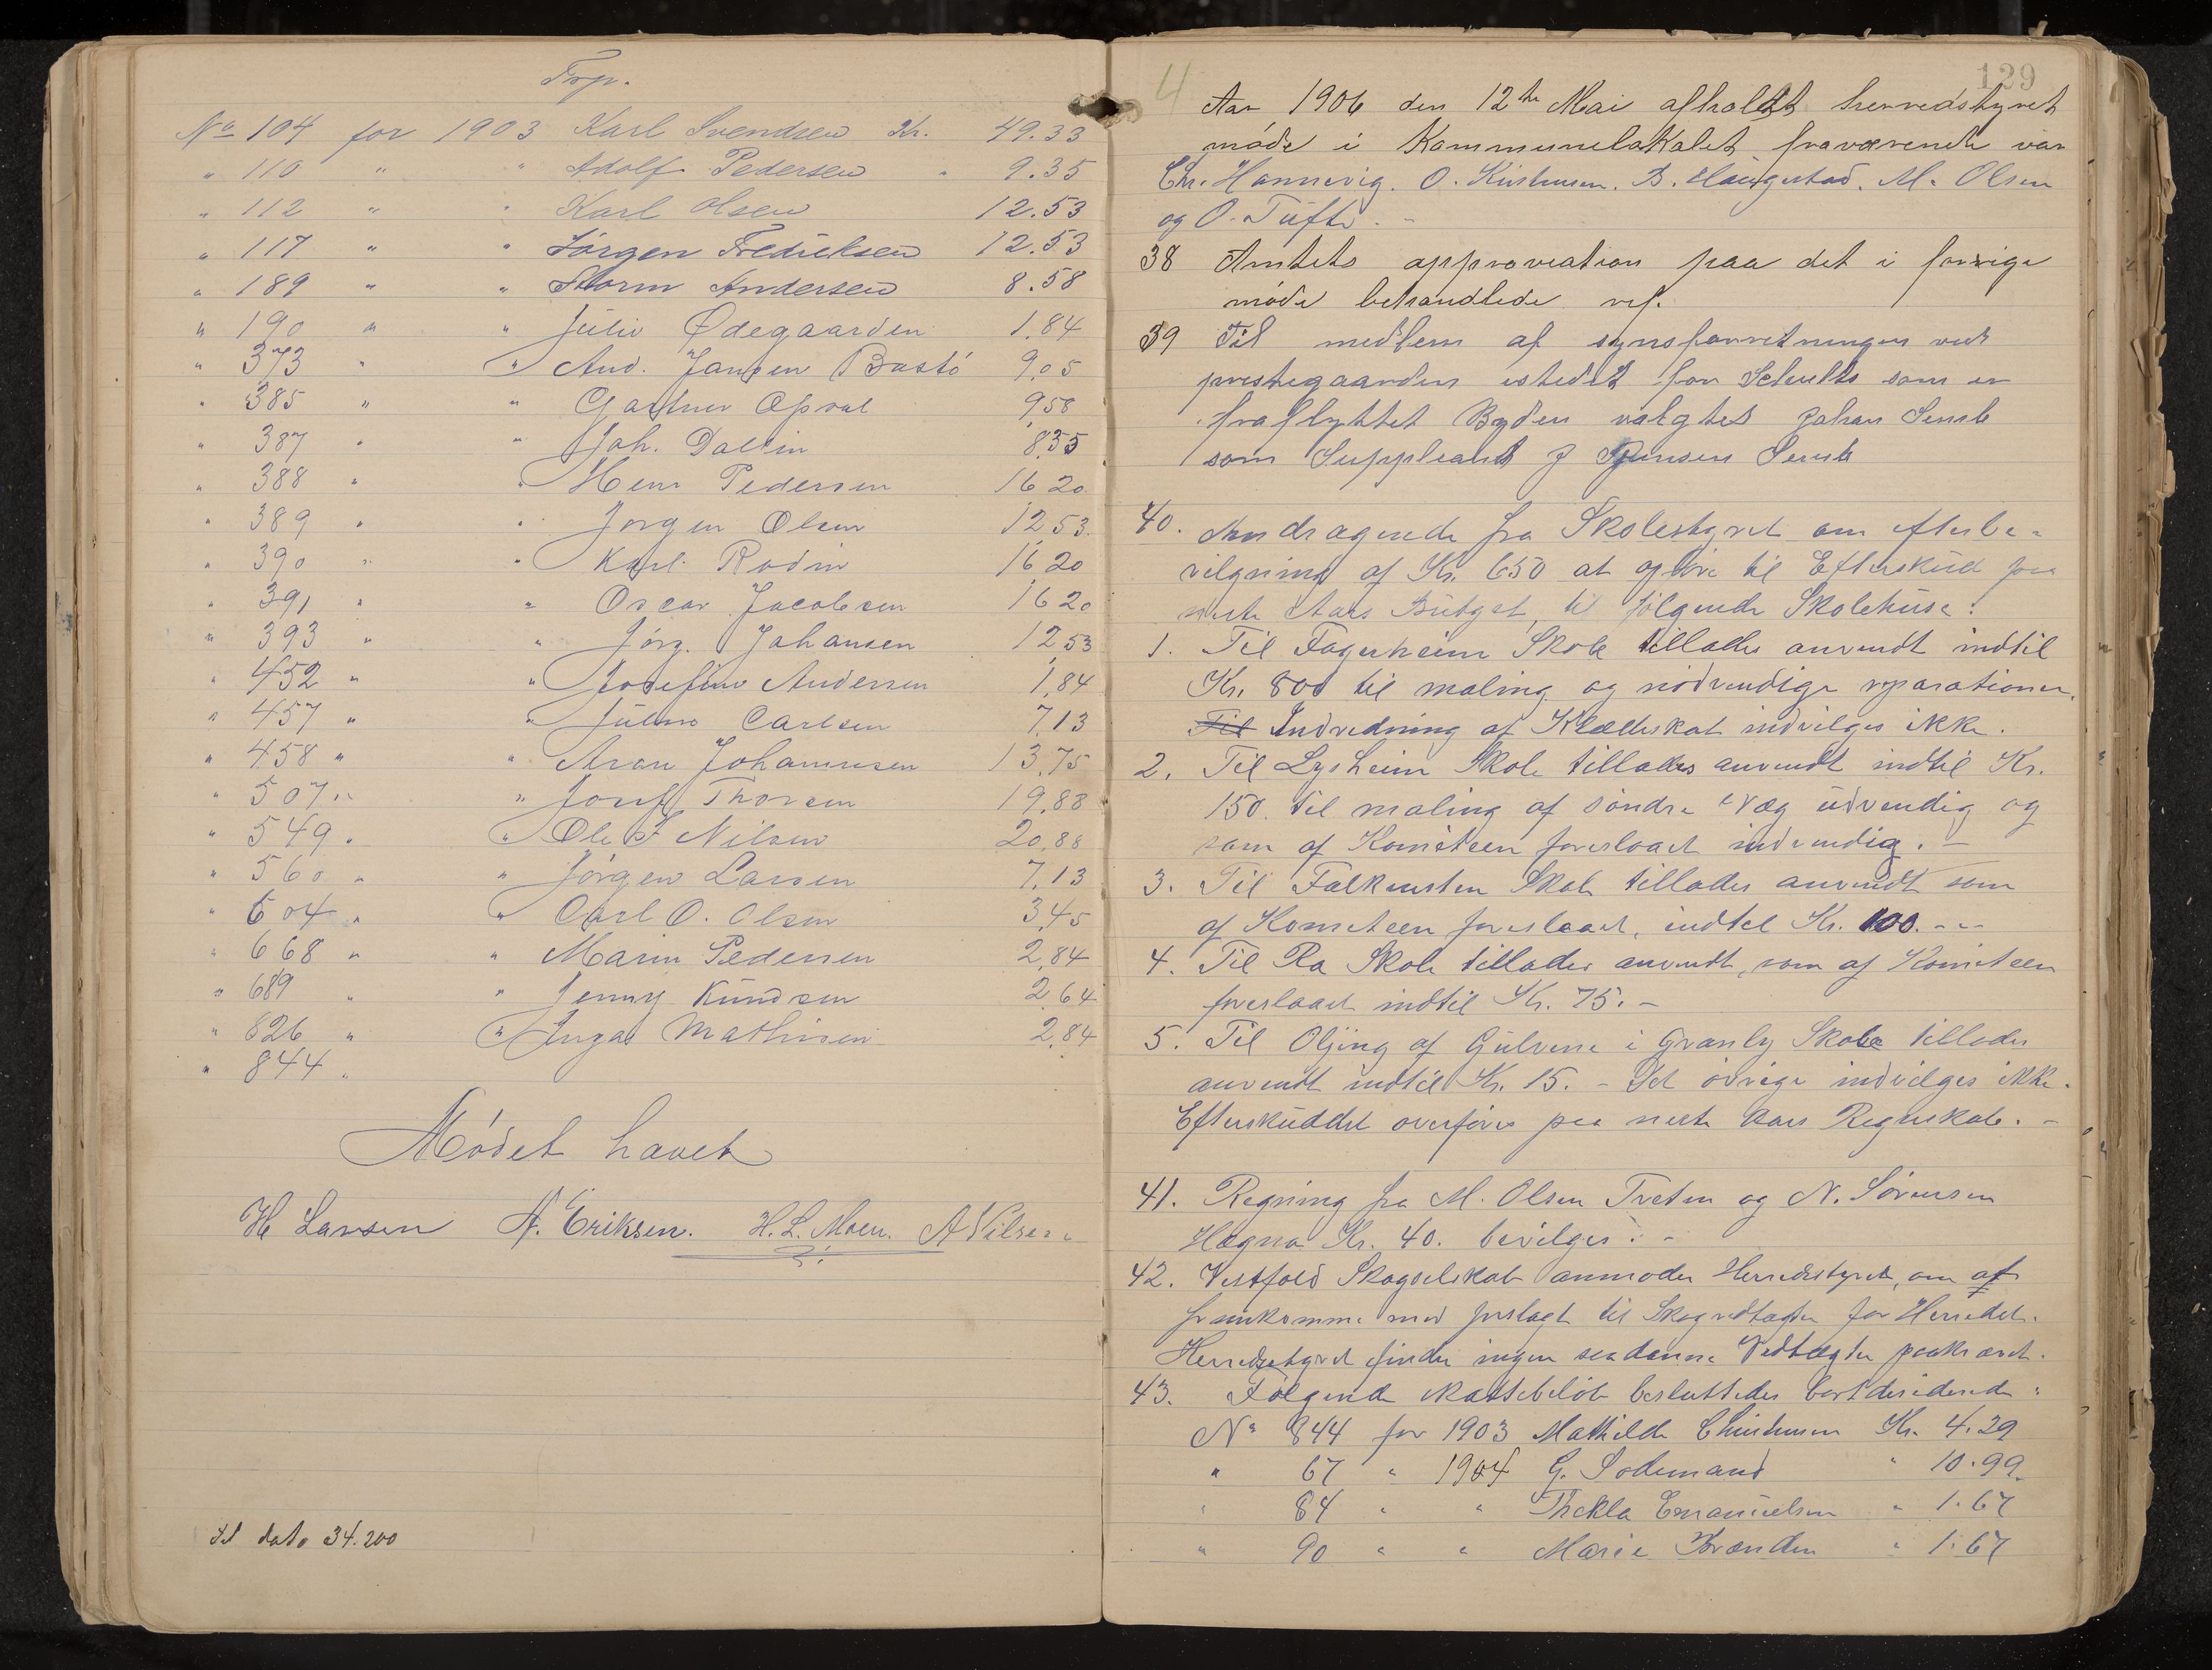 Trp.
No 104 for 1903 Karl Svendsen Kr. 49.33
" 110 " " Adolf Pedersen " 9.35
" 112 " " Karl Olsen 12.53
" 117 " " Jörgen Fredriksen 12.53
" 189 " " Storm Andersen 8.58
" 190 " " Julie Ødegaarden 1.84
" 373 " " And. Jansen Bastö 9,05
" 385 " " Gartner Opsal 9,58
" 387 " " Joh. Dallin 8,35
" 388 " " Henr Pedersen 16 20
" 389 " " Jörgen Olsen 12 53
" 390 " " Karl Rodin 16 20
" 391 " " Oscar Jacobsen 16 20
" 393 " " Jörg. Johansen 12 53
" 452 " " Josefine Andersen 1,84
" 457 " " Julius Carlsen 7,13
" 458 " " Aron Johannesen 13,75
" 507 " " Josef Thorsen 19,88
" 549 " " Ole J Nilsen 20,88
" 560 " " Jörgen Larsen 7,13
" 604 " " Carl O. Olsen 3,45
" 668 " " Marin Pedersen 2,84
" 689 " " Jenny Knudsen 2,64
" 826 " " Inga Mathisen 2,84
" 844 "
Mödet hævet
H Larsen A. Eriksen. H. L. Moen. A Nilsen
Til dato 34.200
4 129
Aar 1906 den 12te Mai afholdt herredstyret
möde i Kommunelokalet fraværende var
Chr. Hannevig. O. Kristensen. B. Haugestad. M. Olsen
og O. Tufte. -
38 Amtets approviation paa det i forrige
möde behandlede ref.
39 Til medlem af synsforretningen ved
prestegaarden istedet for Schults som er
fraflyttet Bygden valgtes Johan Semb
som Suppleant J Jensen Semb
40. Andragende fra Skolestyret om efterbe-
vilgning af Kr. 650 at opföre til Efterskud paa
neste Aars Budget, til fölgende Skolehuse:
1. Til Fagerheim Skole tillades anvendt indtil
Kr. 800 til maling og nödvendige reparationer.
Til Indredning af Klædeskab indvilges ikke.
2. Til Lysheim Skole tillades anvendt indtil Kr.
150. til maling af söndre Væg udvendig og
som af Komiteen foreslaaet indvendig. -
3. Til Falkensten Skole tillades anvendt som
af Komiteen foreslaaet, indtil Kr. 100. - -
4. Til Ra Skole tillades anvendt, som af Komiteen
foreslaaet indtil Kr. 75. -
5. Til Oljing af Gulvene i Granly Skole tillades
anvendt indtil Kr. 15. - Det övrige indvilges ikke.
Efterskuddet overföres paa neste Aars Regnskab. -
41. Regning fra M. Olsen Treten og N. Sörensen
Hagna Kr. 40. bevilges. -
42. Vestfold Skogselskab anmoder Herredstyret, om at
fremkomme med forslagt til Skogvedtægter for Herredet.
Herredstyret finder ingen saadanne Vedtægter paakrævet.
43. Fölgende skattebelöb besluttedes bortdesiderede:
No 844 for 1903 Mathilde Christensen Kr. 4.29
" 67 " 1904 G. Sodemand " 10.99
" 84 " " Thekla Emanuelsen " 1.67
" 90 " " Marie Brænden " 1.67